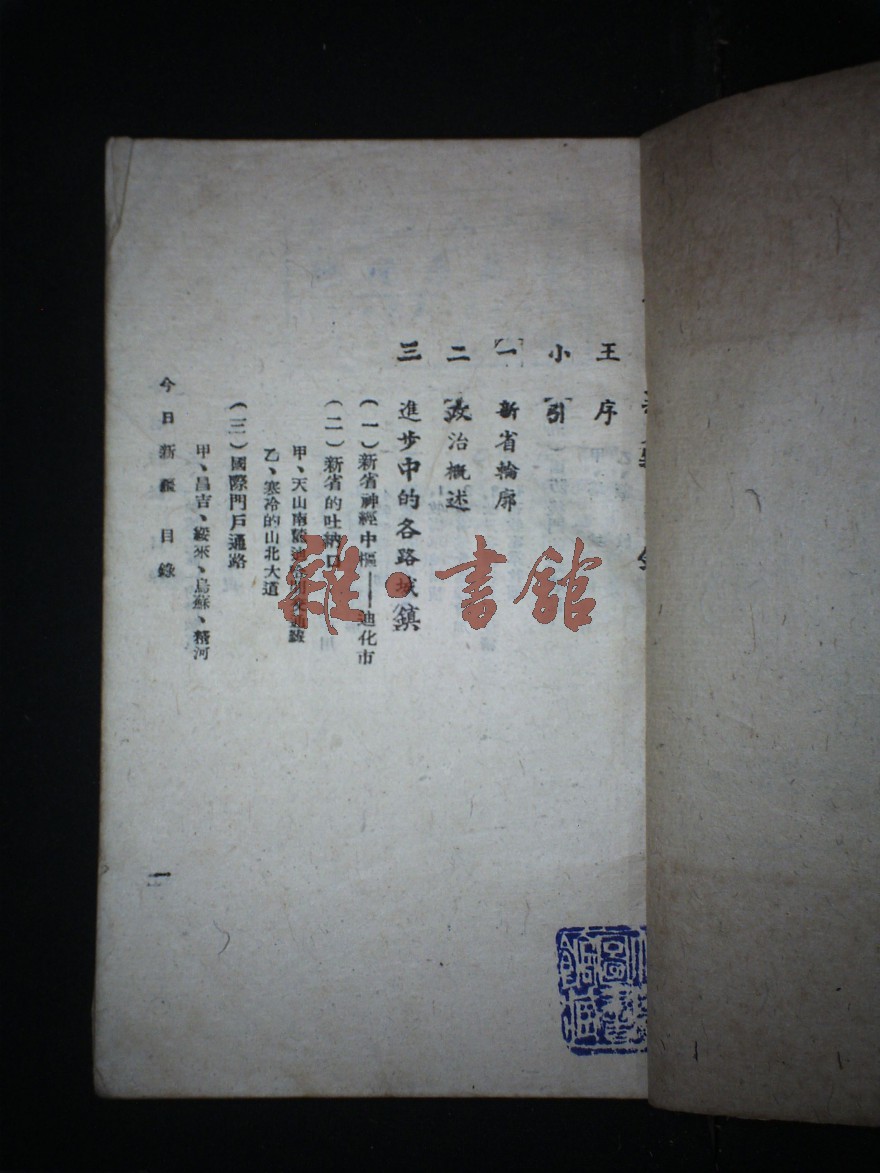 王序
小引
一 新省輪廓
二 政治概述
三 進步中的各路城鎮
(一)新省神經中樞——迪化市
(二)新省的吐納口
甲、天山南
乙、寒冷的山北大道
(三)國際門戶通路
甲、昌吉、綏來、烏蘇、精河
今日新疆 目錄
一
雜·書館